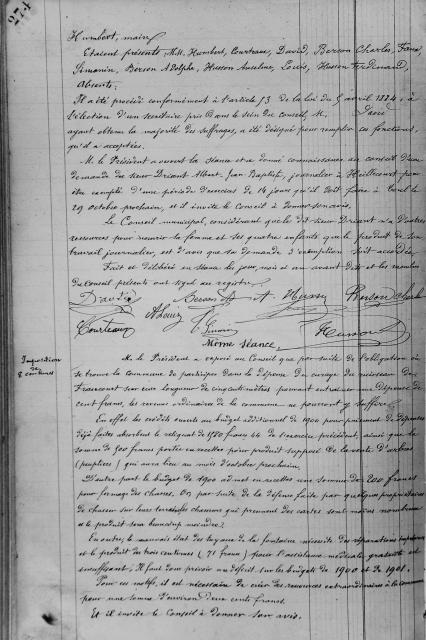 274
Humbert, maire
Etaient présents, MM. Humbert, Courteaux, David, Berson Charles,
Simonin, Berson Adolphe, Husson Anselme, Louis, Husson Ferdinand,
Absents:
Il a été procédé conformément à l'article 53 de la loi du 5 avril 1884, à
l'élection d'un secrétaire pris dans le sein du conseil, M. David
ayant obtenu la majorité des suffrages, a été désigné pour remplir ces fonctions,
qu'il a acceptées.
M. le Président a ouvert la séance et a donné connaissance au conseil d'une
demande du sieur Driant Albert Jean Baptiste, journalier à Haillecourt pour
être exempté d'une période d'exercices de 14 jours qu'il doit faire à
29 octobre prochain, et il invite le Conseil à donner son avis.
Le Conseil municipal, considérant que le dit sieur Driant n'a d'autres
ressources pour nourrir sa femme et ses quatre enfants que le produit de son
travail journalier, est d'avis que sa demande d'exemption soit accordée.
Fait et délibéré en séance les jour, mois et an avant dits et les membres
du Conseil présents ont signé au registre.
David Berson A. Husson Berson
Courteaux A Louis Simonin Husson
Même Séance
Imposition
de
8 centimes
M. le Président a exposé au Conseil que par suite de l'obligation où
se trouve la commune de participer dans la dépense du curage du ruisseau de
Francourt sur une longueur de cinquante mètres pouvant entraîner une dépense de
cent francs, les revenus ordinaires de la commune ne pourront y suffire.
En effet les crédits ouverts au budget additionnel de 1900 pour paiement de dépenses
déjà faites absorbent le reliquat de francs 44 de l'exercice précédent, ainsi que la
somme de 500 francs portée en recettes pour produit supposé de la vente d'arbres
(peupliers) qui aura lieu au mois d'octobre prochain.
D'autre part le budget de 1900 admet en recettes une somme de 200 francs
pour fermage des chasses. Or par suite de la défense faite par quelques propriétaires
de chasser sur leurs terrains les chasseurs qui prennent des cartes sont moins nombreux
et le produit sera beaucoup moindre.
En outre, le mauvais état des tuyaux de la fontaine nécessite des réparations
et le produit des trois centimes (71 francs) pour l'assistance médicale gratuite est
insuffisant. Il faut donc prévoir un déficit sur les budgets de 1900 et de 1901.
Pour ces motifs, il est nécessaire de créer des ressources extraordinaires à la commune
pour une somme d'environ deux cents francs.
Et il invite le Conseil à donner son avis.